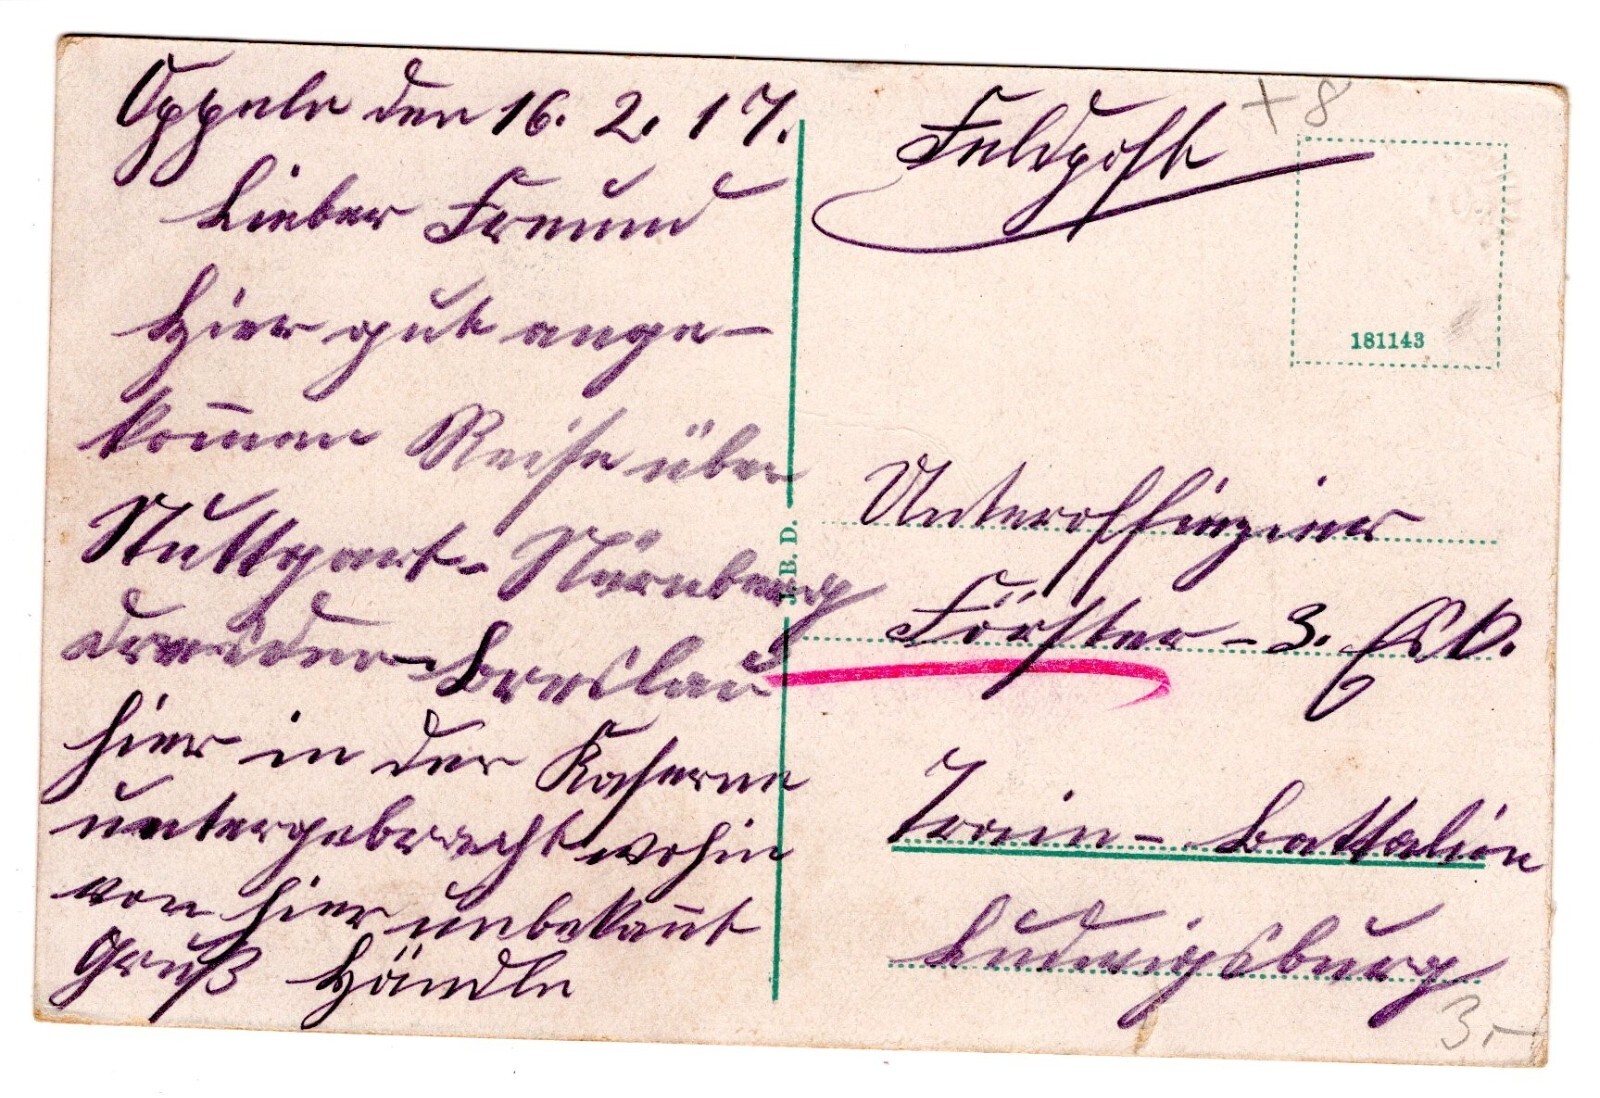 Oppeln den 16. 2. 17.
Lieber Freund
Hier gut ange-
kom̄en Reise über
Stuttgart - Nürnberg
Dresden - Breslau
hier in der Kaserne
untergebracht wohin
von hier unbekan̄t
Gruß Händle
J. B. D.
Feldpost
+ 8
181143
Unteroffizier
Förster - 3. Esk.
Train - Battalion
Ludwigsburg
3,-